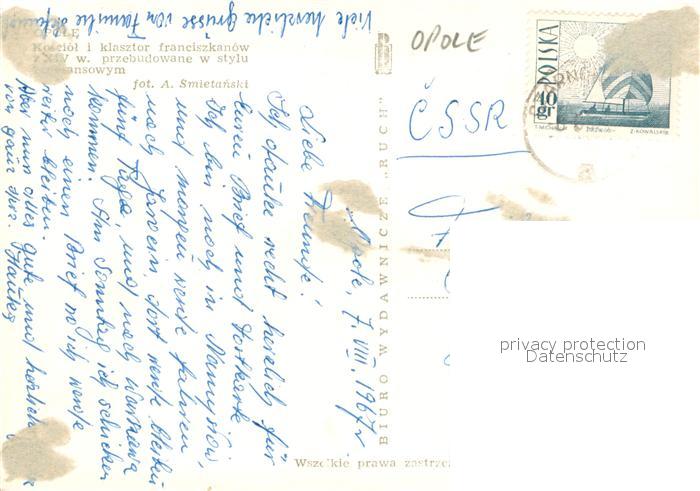 OPOLE
Kościół i klasztor franciszkanów
z XIV w. przebudowane w stylu
fot. A. Śmietański
Viele herzliche Grüsse von Familie
Opole, 7. VIII. 1967 r.
Liebe Freunde!
Ich danke recht herzlich für
Euren Brief und
Ich bin noch in Namysłów,
und morgen werde fahren
nach dort werde bleiben
fünf Tage, und nach Warszawa
kommen. Am Sonntag ich schicken
noch einen Brief wo ich werde
weiter bleiben.
Aber nun alles gute und herzlich
von ganz
BIURO WYDAWNICZE „RUCH"
Wszelkie prawa zastrze
OPOLE
ČSSR
POLSKA
40 gr
Z. KOWALSKI
privacy protection
Datenschutz